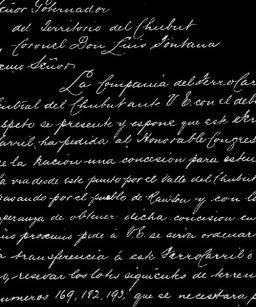 eñor Gobernador
del Territorio del Chubut
Coronel Don Luis Fontana
cmo Señor
La Compania del FerroCar
entral del Chubut ante V. E. con el debi
speto se presenta y espone que este Fer
Carril, ha pedido al Honorable Congres
e la Nacion una concesion para esten
la via desde este punto por el Valle del Chubut
pasando por el pueblo de Rawson y con la
peranza de obtener dicha concesion en
ño proximo pide á V.E. se sirva ordenar
a transferencia á este FerroCarril ó
o, reservar los lotes siguientes de terren
numeros 169, 192, 193, que se necesitará p